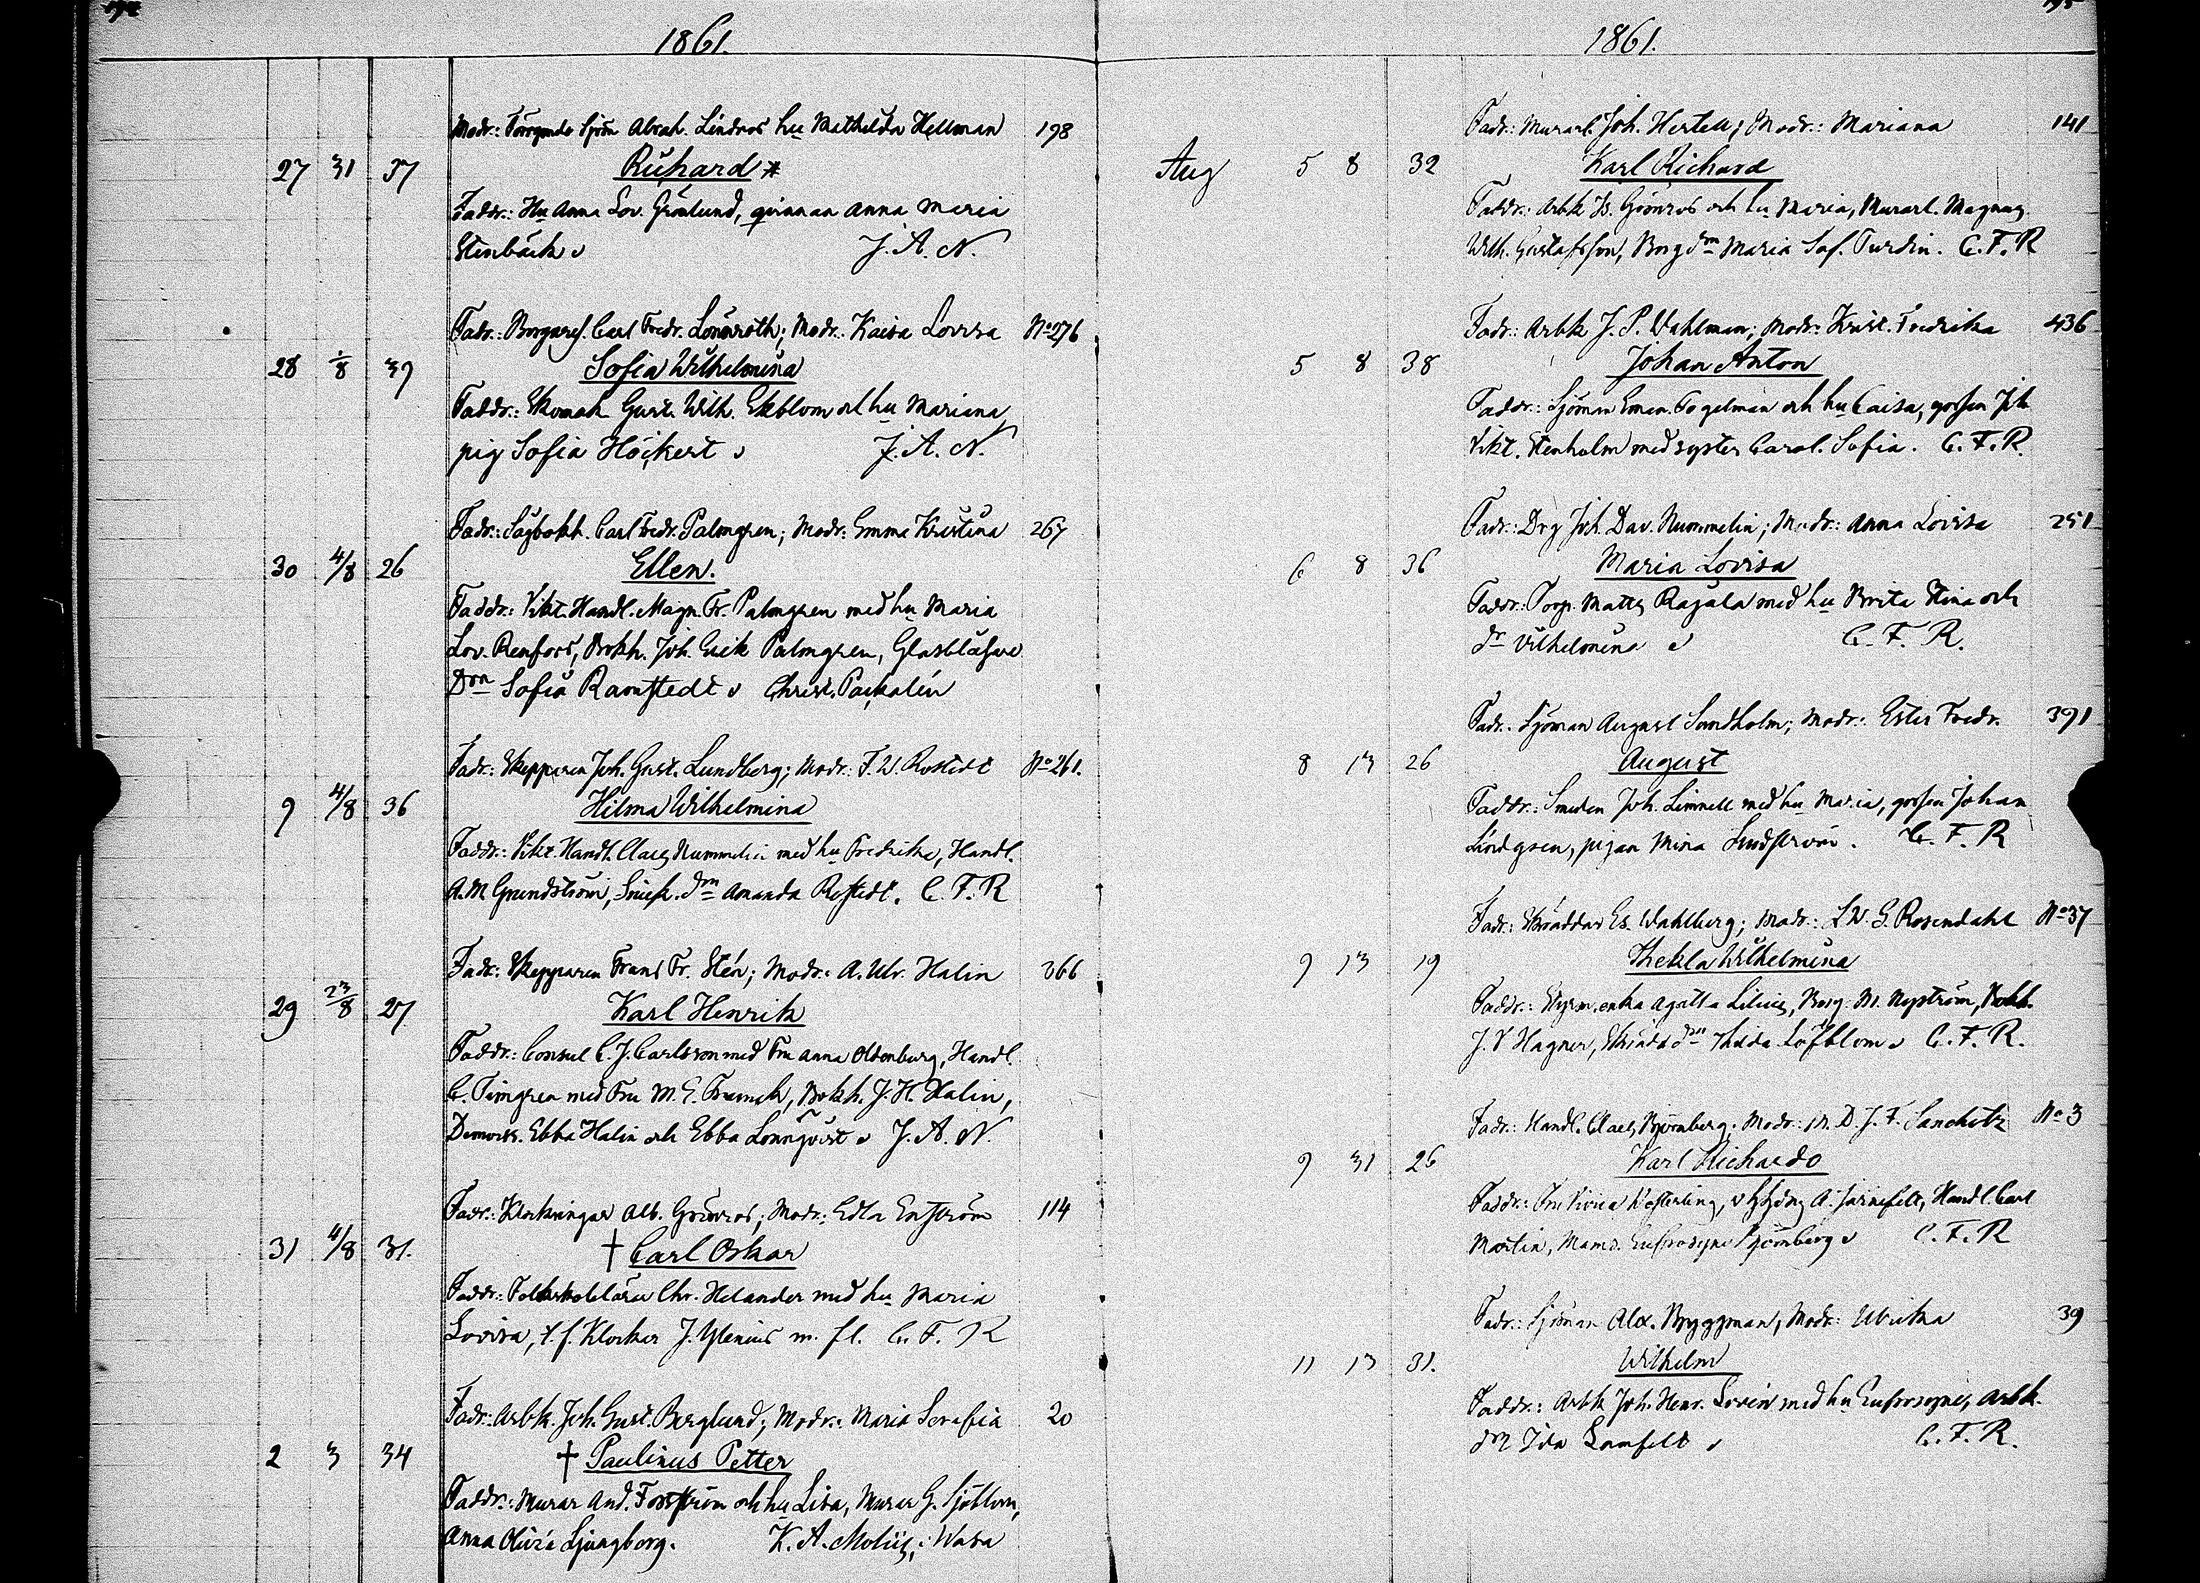 1861.
Modr: Sjöm Abrah. Lindros hu Mathilda Hellman 198
27 31 37 Richard *
Faddr.: Hu Anna Lov. Grönlund, qvinnan Anna Maria
Stenbäck J. A. N.
Fadr.: Borgaref. Carl Fredr. Lönnroth; Modr.: Kaisa Lovisa No 276
28 1/8 39 Sofia Wilhelmina
Faddr.: Skomak Gust. Wilh. Ekblom och hu Mariana,
pig Sofia Höckert J. A. N.
Fadr.: Sågbokh. Carl Fredr. Palmgren; Modr: Emma Kristina 267
30 4/8 26 Ellen.
Faddr.: Vikt. Handl. Magn. Fr. Palmgren med hu Maria
Lov. Renfors, Bokh. Joh. Erik Palmgren, Glasblåsare
Drn Sofia Ramstedt Christ. Packalén
Fadr: Skepparen Joh. Gust. Lundberg; Modr: F. W. Rostedt No 261.
9 4/8 36 Hilma Wilhelmina
Faddr.: Vikt. Handl. Claes Nummelin med hu Fredrika, Handl.
A. M. Grundström, Snick. dm Amanda Rostedt. C. F. R
Fadr: Skepparen Frans Fr. Stén; Modr: A. Ulr. Halin 266
29 23/8 27 Karl Henrik
Faddr: Consul C. J. Carlsson med Fru Anna Oldenburg, Handl.
C. Timgren med Fru M. E. Bokh. J. H. Halin,
Demoiss. Ebba Halin och Ebba Lönnqvist J. A. N.
Fadr.: Klockringar Alb. Grönros; Modr: Edla Enström 114
31 4/8 31. † Carl Oskar
Faddr: Folkskolelärar Chr. Helander med hu Maria
Lovisa, t. f. Klockar J. Ylenius m. fl. C. F. R
Fadr: Arbk. Joh. Gust. Berglund; Modr: Maria Serafia 20
2 3 34 † Paulinus Petter
Faddr.: Murar And. Forsström och hu Lisa, Murar G. Sjöblom,
Anna Olivia Ljungberg. K. A. Moliis, i Wasa
1861.
Fadr.: Murarl. Joh. Hertell; Modr: Mariana 141
Aug 5 8 32 Karl Richard
Faddr.: Arbk Is. Grönros och hu Maria, Murarl. Magnus
Wilh. Gustafsson, Borg dm Maria Sof. Turdin. C. F. R
Fadr: Arbk J. P. Wahlman; Modr: Krist. Fredrika 436
5 8 38 Johan Anton
Faddr.: Sjöman Eman. Fogelman och hu Caisa, gossen Joh
Vikt. Stenholm med syster Carol. Sofia. C. F. R.
Fadr: Drg Joh. Dav. Nummelin; Modr: Anna Lovisa 251
6 8 36 Maria Lovisa
Faddr: Torp. Matts Rajala med hu Brita Stina och
dr Vilhelmina C. F. R.
Fadr. Sjöman August Sandholm; Modr: Ester Fredr. 391
8 13 26 August
Faddr.: Smeden Joh. Limnell med hu Maria, gossen Johan
Lindgren, pigan Mina Lindström. C. F. R
Fadr.: Skräddar Es. Wahlberg; Modr: L W. G. Rosendahl No 37
9 13 19 Thekla Wilhelmina
Faddr.: Styrm. enka Agatha Lilius, Borg. M. Nyström, Bokh.
J. V Hagner, Skrädd dm Thilda Löfblom C. F. R.
Fadr: Handl. Claes Björnberg. Modr: M. D. J. F. Sanchetz No 3
9 31 26 Karl Richardo
Faddr: Fru A. Järnefelt, Handl. Carl
Martin, Mams. Eufrosyne Björnberg C. F. R
Fadr: Sjöman Alex. Byggman, Modr: Ulrika 39
11 13 31. Wilhelm
Faddr.: Arbk Joh. Henr. Lovén med hu Eufrosyne, Arbk.
dr Ida Lamfelt C. F. R.